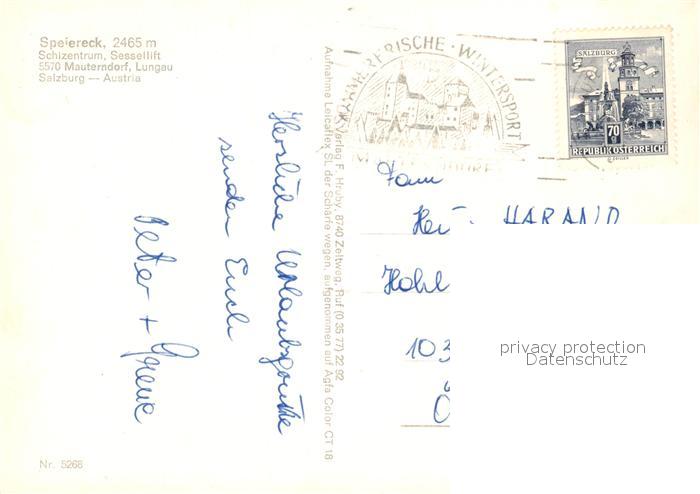 Speiereck, 2465 m
Schizentrum, Sessellift
5570 Mauterndorf, Lungau
Salzburg — Austria
Herzliche Urlaubsgrüße
senden Euch
Peter +
Nr. 5268
Verlag F. Hruby, 8740 Zeltweg, Ruf (0 35 77) 22 92
Aufnahme Leicaflex SL der Schärfe wegen, aufgenommen auf Agfa Color CT 18
WINTERSPORT
SALZBURG
70
REPUBLIK ÖSTERREICH
Fam
HARAND
Hohl
103
Ö
privacy protection
Datenschutz